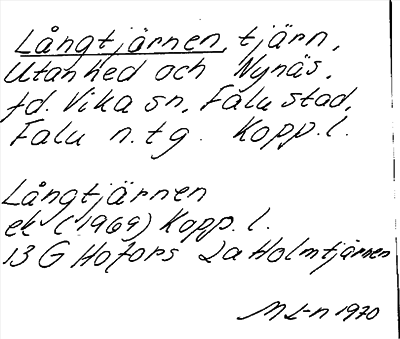 Långtjärnen, tjärn,
Utanhed och Nynäs,
fd. Vika sn, Falu stad,
Falu n.tg. Kopp.l.
Långtjärnen
ek (1969) Kopp.l.
13 G Hofors 2a Holmtjärnen
M L-n 1970